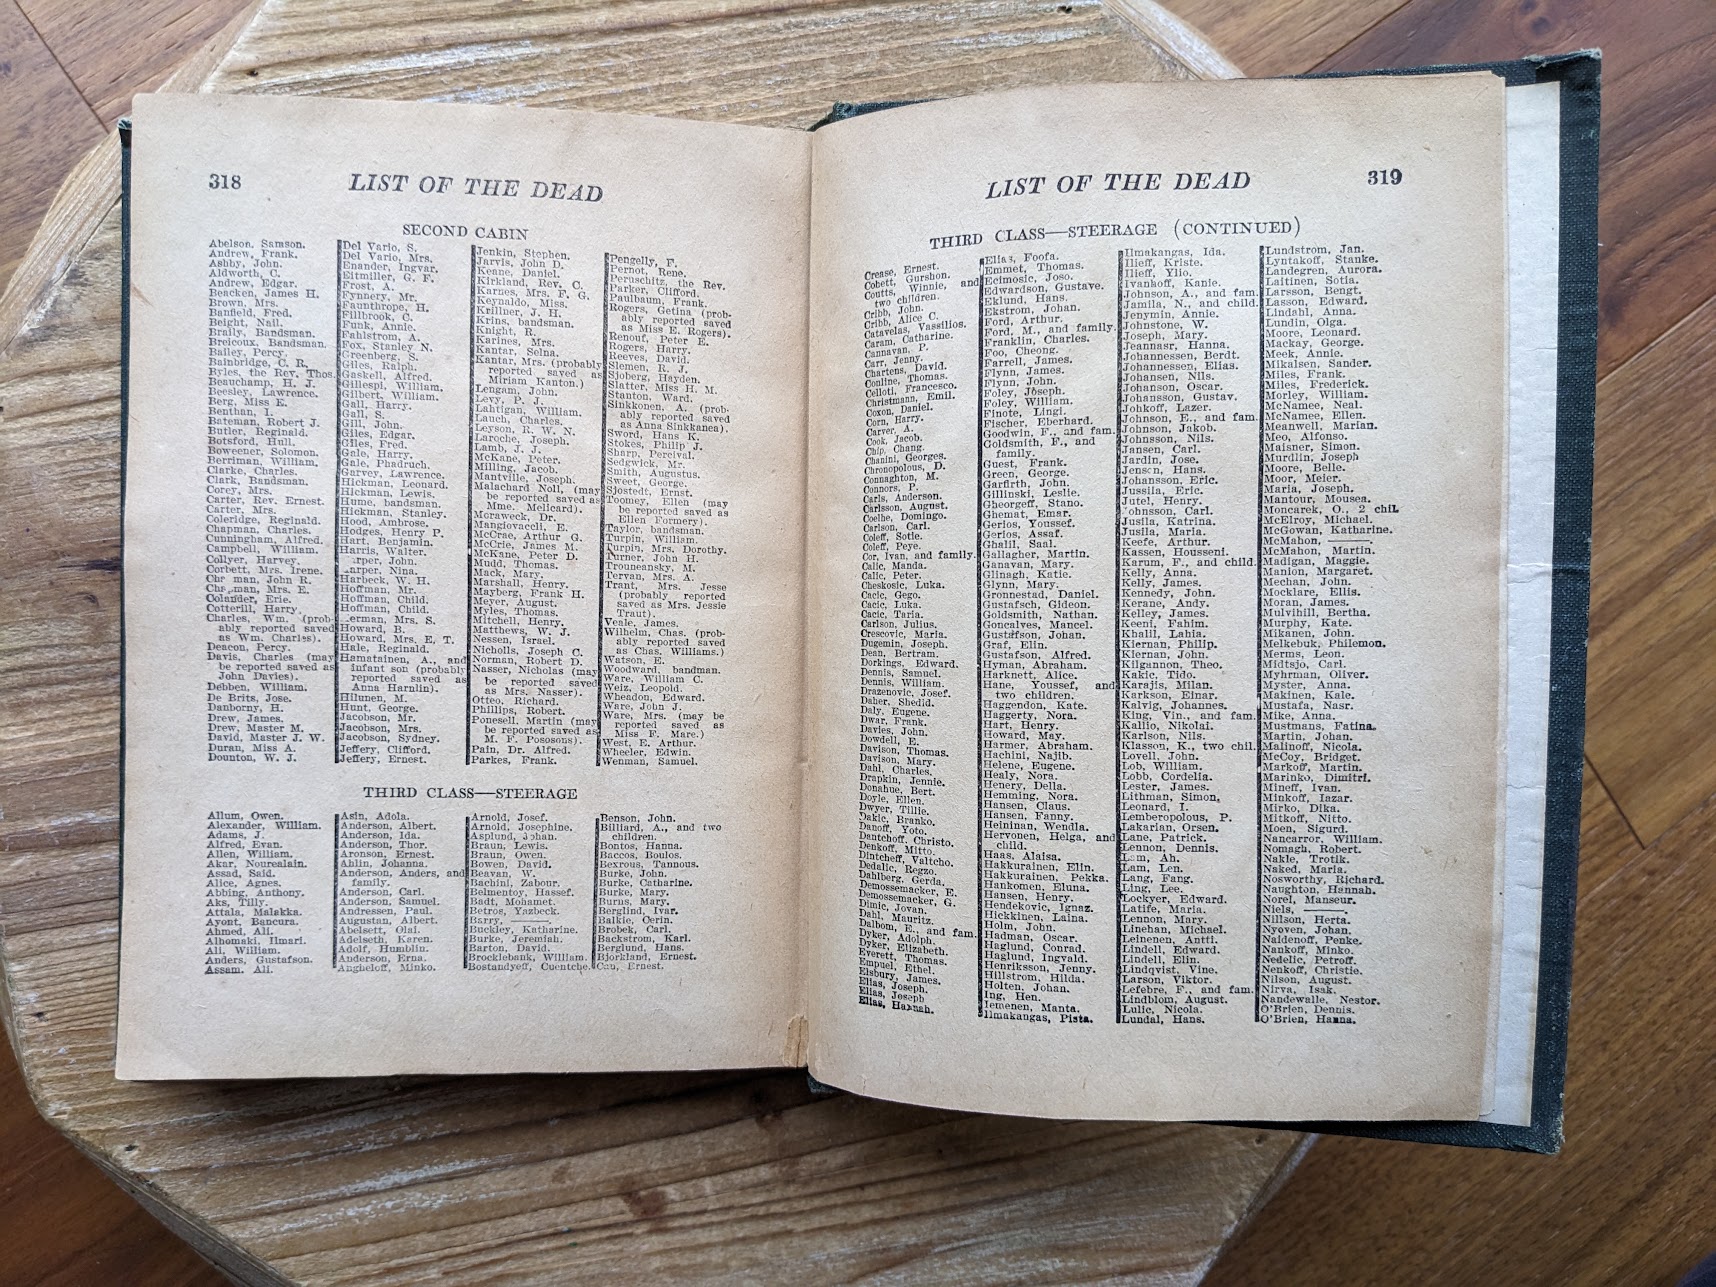 318
LIST OF THE DEAD
SECOND CABIN
Abelson, Samson.
Andrew, Frank.
Ashby, John.
Aldworth, C.
Andrew, Edgar.
Beacken, James H.
Brown, Mrs.
Banfield, Fred.
Beight, Nail.
Braily, Bandsman.
Breicoux, Bandsman.
Bailey, Percy.
Bainbridge, C. R.
Byles, the Rev. Thos.
Beauchamp, H. J.
Beesley, Lawrence.
Berg, Miss E.
Benthan, I.
Bateman, Robert J.
Butler, Reginald.
Botsford, Hull.
Boweener, Solomon.
Berriman, William.
Clarke, Charles.
Clark, Bandsman.
Corey, Mrs.
Carter, Rev. Ernest.
Carter, Mrs.
Coleridge, Reginald.
Chapman, Charles.
Cunningham, Alfred.
Campbell, William.
Collyer, Harvey.
Corbett, Mrs. Irene.
John R.
Mrs. E.
Colander, Eric.
Cotterill, Harry.
Charles, Wm. (prob-
ably reported saved
as Wm. Charles).
Deacon, Percy.
Davis, Charles (may
be reported saved as
John Davies).
Debben, William.
De Brits, Jose.
Danborny, H.
Drew, James.
Drew, Master M.
David, Master J. W.
Duran, Miss A.
Dounton, W. J.
Del Vario, S.
Del Vario, Mrs.
Enander, Ingvar.
Eitmiller, G. F.
Frost, A.
Fynnery, Mr.
Faunthrope, H.
Fillbrook, C.
Funk, Annie.
Fahlstrom, A.
Fox, Stanley N.
Greenberg, S.
Giles, Ralph.
Gaskell, Alfred.
Gillespi, William.
Gilbert, William.
Gall, Harry.
Gall, S.
Gill, John.
Giles, Edgar.
Giles, Fred.
Gale, Harry.
Gale, Phadruch.
Garvey, Lawrence.
Hickman, Leonard.
Hickman, Lewis.
Hume, bandsman.
Hickman, Stanley.
Hood, Ambrose.
Hodges, Henry P.
Hart, Benjamin.
Harris, Walter.
John.
Nina.
Harbeck, W. H.
Hoffman, Mr.
Hoffman, Child.
Hoffman, Child.
Mrs. S.
Howard, B.
Howard, Mrs. E. T.
Hale, Reginald.
Hamatainen, A., and
infant son (probably
reported saved as
Anna Harnlin).
Hilunen, M.
Hunt, George.
Jacobson, Mr.
Jacobson, Mrs.
Jacobson, Sydney.
Jeffery, Clifford.
Jeffery, Ernest.
Jenkin, Stephen.
Jarvis, John D.
Keane, Daniel.
Kirkland, Rev. C.
Karnes, Mrs. F. G.
Keynaldo, Miss.
Krillner, J. H.
Krins, bandsman.
Knight, R.
Karines, Mrs.
Kantar, Selna.
Kantar, Mrs. (probably
reported saved as
Miriam Kanton.)
Lengam, John.
Levy, P. J.
Lahtigan, William.
Lauch, Charles.
Leyson, R. W. N.
Laroche, Joseph.
Lamb, J. J.
McKane, Peter.
Milling, Jacob.
Mantville, Joseph.
Malachard Noll, (may
be reported saved as
Mme. Melicard).
Moraweck, Dr.
Mangiovacci, E.
McCrae, Arthur G.
McCrie, James M.
McKane, Peter D.
Mudd, Thomas.
Mack, Mary.
Marshall, Henry.
Mayberg, Frank H.
Meyer, August.
Myles, Thomas.
Mitchell, Henry.
Matthews, W. J.
Nessen, Israel.
Nicholls, Joseph C.
Norman, Robert D.
Nasser, Nicholas (may
be reported saved
as Mrs. Nasser).
Otteo, Richard.
Phillips, Robert.
Ponesell, Martin (may
be reported saved as
M. F. Pososons).
Pain, Dr. Alfred.
Parkes, Frank.
Pengelly, F.
Pernot, Rene.
Peruschitz, the Rev.
Parker, Clifford.
Paulbaum, Frank.
Rogers, Getina (prob-
ably reported saved
as Miss E. Rogers).
Renouf, Peter E.
Rogers, Harry.
Reeves, David.
Slemen, R. J.
Sjoberg, Hayden.
Slatter, Miss H. M.
Stanton, Ward.
Sinkkonen, A. (prob-
ably reported saved
as Anna Sinkkanea).
Sword, Hans K.
Stokes, Philip J.
Sharp, Percival.
Sedgwick, Mr.
Smith, Augustus.
Sweet, George.
Sjostedt, Ernst.
Toomey, Ellen (may
be reported saved as
Ellen Formery).
Taylor, bandsman.
Turpin, William.
Turpin, Mrs. Dorothy.
Turner, John H.
Trouneansky, M.
Tervan, Mrs. A.
Trant, Mrs. Jesse
(probably reported
saved as Mrs. Jessie
Traut).
Veale, James.
Wilhelm, Chas. (prob-
ably reported saved
as Chas. Williams.)
Watson, E.
Woodward, bandman.
Ware, William C.
Weiz, Leopold.
Wheadon, Edward.
Ware, John J.
Ware, Mrs. (may be
reported saved as
Miss F. Mare.)
West, E. Arthur.
Wheeler, Edwin.
Wenman, Samuel.
THIRD CLASS—STEERAGE
Allum, Owen.
Alexander, William.
Adams, J.
Alfred, Evan.
Allen, William.
Akar, Nourealain.
Assad, Said.
Alice, Agnes.
Abbing, Anthony.
Aks, Tilly.
Attala, Malakka.
Ayont, Bancura.
Ahmed, Ali.
Alhomaki, Ilmari.
Ali, William.
Anders, Gustafson.
Assam, Ali.
Asin, Adola.
Anderson, Albert.
Anderson, Ida.
Anderson, Thor.
Aronson, Ernest.
Ahlin, Johanna.
Anderson, Anders, and
family.
Anderson, Carl.
Anderson, Samuel.
Andressen, Paul.
Augustan, Albert.
Abelsett, Olai.
Adelseth, Karen.
Adolf, Humblin.
Anderson, Erna.
Angheloff, Minko.
Arnold, Josef.
Arnold, Josephine.
Asplund, Johan.
Braun, Lewis.
Braun, Owen.
Bowen, David.
Beavan, W.
Bachini, Zabour.
Belmentoy, Hassef.
Badt, Mohamet.
Betros, Yazbeck.
Barry, ———.
Buckley, Katharine.
Burke, Jeremiah.
Barton, David.
Brocklebank, William.
Bostandyeff, Cuentche.
Benson, John.
Billiard, A., and two
children.
Bontos, Hanna.
Baccos, Boulos.
Bexrous, Tannous.
Burke, John.
Burke, Catharine.
Burke, Mary.
Burns, Mary.
Berglind, Ivar.
Balkic, Cerin.
Brobek, Carl.
Backstrom, Karl.
Berglund, Hans.
Bjorkland, Ernest.
Ernest.
319
LIST OF THE DEAD
THIRD CLASS—STEERAGE (CONTINUED)
Crease, Ernest.
Cobett, Gurshon.
Coutts, Winnie, and
two children.
Cribb, John.
Cribb, Alice C.
Catavelas, Vassilios.
Caram, Catharine.
Cannavan, P.
Carr, Jenny.
Chartens, David.
Conline, Thomas.
Celloti, Francesco.
Christmann, Emil.
Coxon, Daniel.
Corn, Harry.
Carver, A.
Cook, Jacob.
Chip, Chang.
Chanini, Georges.
Chronopolous, D.
Connaghton, M.
Connors, P.
Carls, Anderson.
Carlsson, August.
Coelhe, Domingo.
Carlson, Carl.
Coleff, Sotie.
Coleff, Peye.
Cor, Ivan, and family.
Calic, Manda.
Calic, Peter.
Cheskosic, Luka.
Cacic, Gego.
Cacic, Luka.
Cacic, Taria.
Carlson, Julius.
Crescovic, Maria.
Dugemin, Joseph.
Dean, Bertram.
Dorkings, Edward.
Dennis, Samuel.
Dennis, William.
Drazenovic, Josef.
Daher, Shedid.
Daly, Eugene.
Dwar, Frank.
Davies, John.
Dowdell, E.
Davison, Thomas.
Davison, Mary.
Dahl, Charles.
Drapkin, Jennie.
Donahue, Bert.
Doyle, Ellen.
Dwyer, Tillie.
Dakic, Branko.
Danoff, Yoto.
Dantchoff, Christo.
Denkoff, Mitto.
Dintcheff, Valtcho.
Dedalic, Regzo.
Dahlberg, Gerda.
Demossemacker, E.
Demossemacker, G.
Dimic, Jovan.
Dahl, Mauritz.
Dalbom, E., and fam.
Dyker, Adolph.
Dyker, Elizabeth.
Everett, Thomas.
Empuel, Ethel.
Elsbury, James.
Elias, Joseph.
Elias, Joseph
Elias, Hannah.
Elias, Foofa.
Emmet, Thomas.
Ecimosic, Joso.
Edwardson, Gustave.
Eklund, Hans.
Ekstrom, Johan.
Ford, Arthur.
Ford, M., and family.
Franklin, Charles.
Foo, Cheong.
Farrell, James.
Flynn, James.
Flynn, John.
Foley, Joseph.
Foley, William.
Finote, Lingi.
Fischer, Eberhard.
Goodwin, F., and fam.
Goldsmith, F., and
family.
Guest, Frank.
Green, George.
Garfirth, John.
Gillinski, Leslie.
Gheorgeff, Stano.
Ghemat, Emar.
Gerios, Youssef.
Gerios, Assaf.
Ghalil, Saal.
Gallagher, Martin.
Ganavan, Mary.
Glinagh, Katie.
Glynn, Mary.
Gronnestad, Daniel.
Gustafsch, Gideon.
Goldsmith, Nathan.
Goncalves, Mancel.
Gustafson, Johan.
Graf, Elin.
Gustafson, Alfred.
Hyman, Abraham.
Harknett, Alice.
Hane, Youssef, and
two children.
Haggendon, Kate.
Haggerty, Nora.
Hart, Henry.
Howard, May.
Harmer, Abraham.
Hachini, Najib.
Helene, Eugene.
Healy, Nora.
Henery, Della.
Hemming, Nora.
Hansen, Claus.
Hansen, Fanny.
Heininan, Wendla.
Hervonen, Helga, and
child.
Haas, Alaisa.
Hakkurainen, Elin.
Hakkurainen, Pekka.
Hankomen, Eluna.
Hansen, Henry.
Hendekovic, Ignaz.
Hickkinen, Laina.
Holm, John.
Hadman, Oscar.
Haglund, Conrad.
Haglund, Ingvald.
Henriksson, Jenny.
Hillstrom, Hilda.
Holten, Johan.
Ing, Hen.
Iemenen, Manta.
Ilmakangas, Pista.
Ilmakangas, Ida.
Ilieff, Kriste.
Ilieff, Ylio.
Ivanhoff, Kanie.
Johnson, A., and fam.
Jamila, N., and child.
Jenymin, Annie.
Johnstone, W.
Joseph, Mary.
Jeannasr, Hanna.
Johannessen, Berdt.
Johannessen, Elias.
Johansen, Nils.
Johanson, Oscar.
Johansson, Gustav.
Johkoff, Lazer.
Johnson, E., and fam.
Johnson, Jakob.
Johnsson, Nils.
Jansen, Carl.
Jardin, Jose.
Jensen, Hans.
Johansson, Eric.
Jussila, Eric.
Jutel, Henry.
Johnsson, Carl.
Jusila, Katrina.
Jusila, Maria.
Keefe, Arthur.
Kassen, Housseni.
Karum, F., and child.
Kelly, Anna.
Kelly, James.
Kennedy, John.
Kerane, Andy.
Kelley, James.
Keeni, Fahim.
Khalil, Lahia.
Kiernan, Philip.
Kiernan, John.
Kilgannon, Theo.
Kakic, Tido.
Karajis, Milan.
Karkson, Einar.
Kalvig, Johannes.
King, Vin., and fam.
Kallio, Nikolai.
Karlson, Nils.
Klasson, K., two chil.
Lovell, John.
Lob, William.
Lobb, Cordelia.
Lester, James.
Lithman, Simon.
Leonard, I.
Lemberopolous, P.
Lakarian, Orsen.
Lane, Patrick.
Lennon, Dennis.
Lam, Ah.
Lam, Len.
Lang, Fang.
Ling, Lee.
Lockyer, Edward.
Latife, Maria.
Lennon, Mary.
Linehan, Michael.
Leinenen, Antti.
Lindell, Edward.
Lindell, Elin.
Lindqvist, Vine.
Larson, Viktor.
Lefebre, F., and fam.
Lindblom, August.
Lulic, Nicola.
Lundal, Hans.
Lundstrom, Jan.
Lyntakoff, Stanke.
Landegren, Aurora.
Laitinen, Sotia.
Larsson, Bengt.
Lasson, Edward.
Lindahl, Anna.
Lundin, Olga.
Moore, Leonard.
Mackay, George.
Meek, Annie.
Mikalsen, Sander.
Miles, Frank.
Miles, Frederick.
Morley, William.
McNamee, Neal.
McNamee, Ellen.
Meanwell, Marian.
Meo, Alfonso.
Maisner, Simon.
Murdlin, Joseph
Moore, Belle.
Moor, Meier.
Maria, Joseph.
Mantour, Mousea.
Moncarek, O., 2 chil.
McElroy, Michael.
McGowan, Katharine.
McMahon, ———.
McMahon, Martin.
Madigan, Maggie.
Manion, Margaret.
Mechan, John.
Mocklare, Ellis.
Moran, James.
Mulvihill, Bertha.
Murphy, Kate.
Mikanen, John.
Melkebuk, Philemon.
Merms, Leon.
Midtsjo, Carl.
Myhrman, Oliver.
Myster, Anna.
Makinen, Kale.
Mustafa, Nasr.
Mike, Anna.
Mustmans, Fatina.
Martin, Johan.
Malinoff, Nicola.
McCoy, Bridget.
Markoff, Martin.
Marinko, Dimitri.
Mineff, Ivan.
Minkoff, Iazar.
Mirko, Dika.
Mitkoff, Nitto.
Moen, Sigurd.
Nancarror, William.
Nomagh, Robert.
Nakle, Trotik.
Naked, Maria.
Nosworthy, Richard.
Naughton, Hannah.
Norel, Manseur.
Niels, ———.
Nillson, Herta.
Nyoven, Johan.
Naidenoff, Penke.
Nankoff, Minko.
Nedelic, Petroff.
Nenkoff, Christie.
Nilson, August.
Nirva, Isak.
Nandewalle, Nestor.
O'Brien, Dennis.
O'Brien, Hanna.